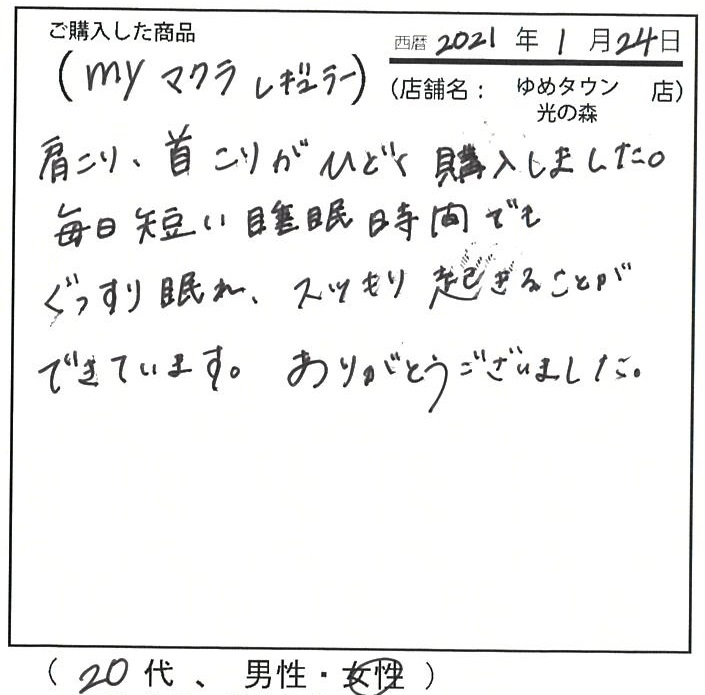 ご購入した商品
西暦 2021 年 1 月 24 日
(my マクラ レギュラー)
(店舗名： ゆめタウン 光の森 店)
肩こり、首こりがひどく購入しました。
毎日短い睡眠時間でも
ぐっすり眠れ、スッキリ起きることが
できています。ありがとうございました。
( 20 代 、 男性・女性 )